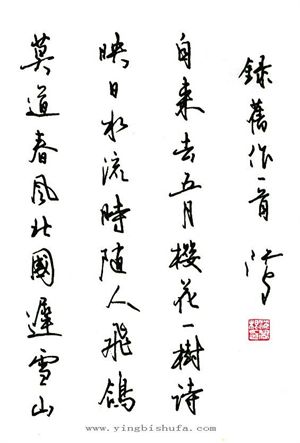 莫道春風北國遲雪山
映日水流時隨人飛鴿
自來去五月櫻花一樹詩
錄舊作一首
www.yingbishufa.com